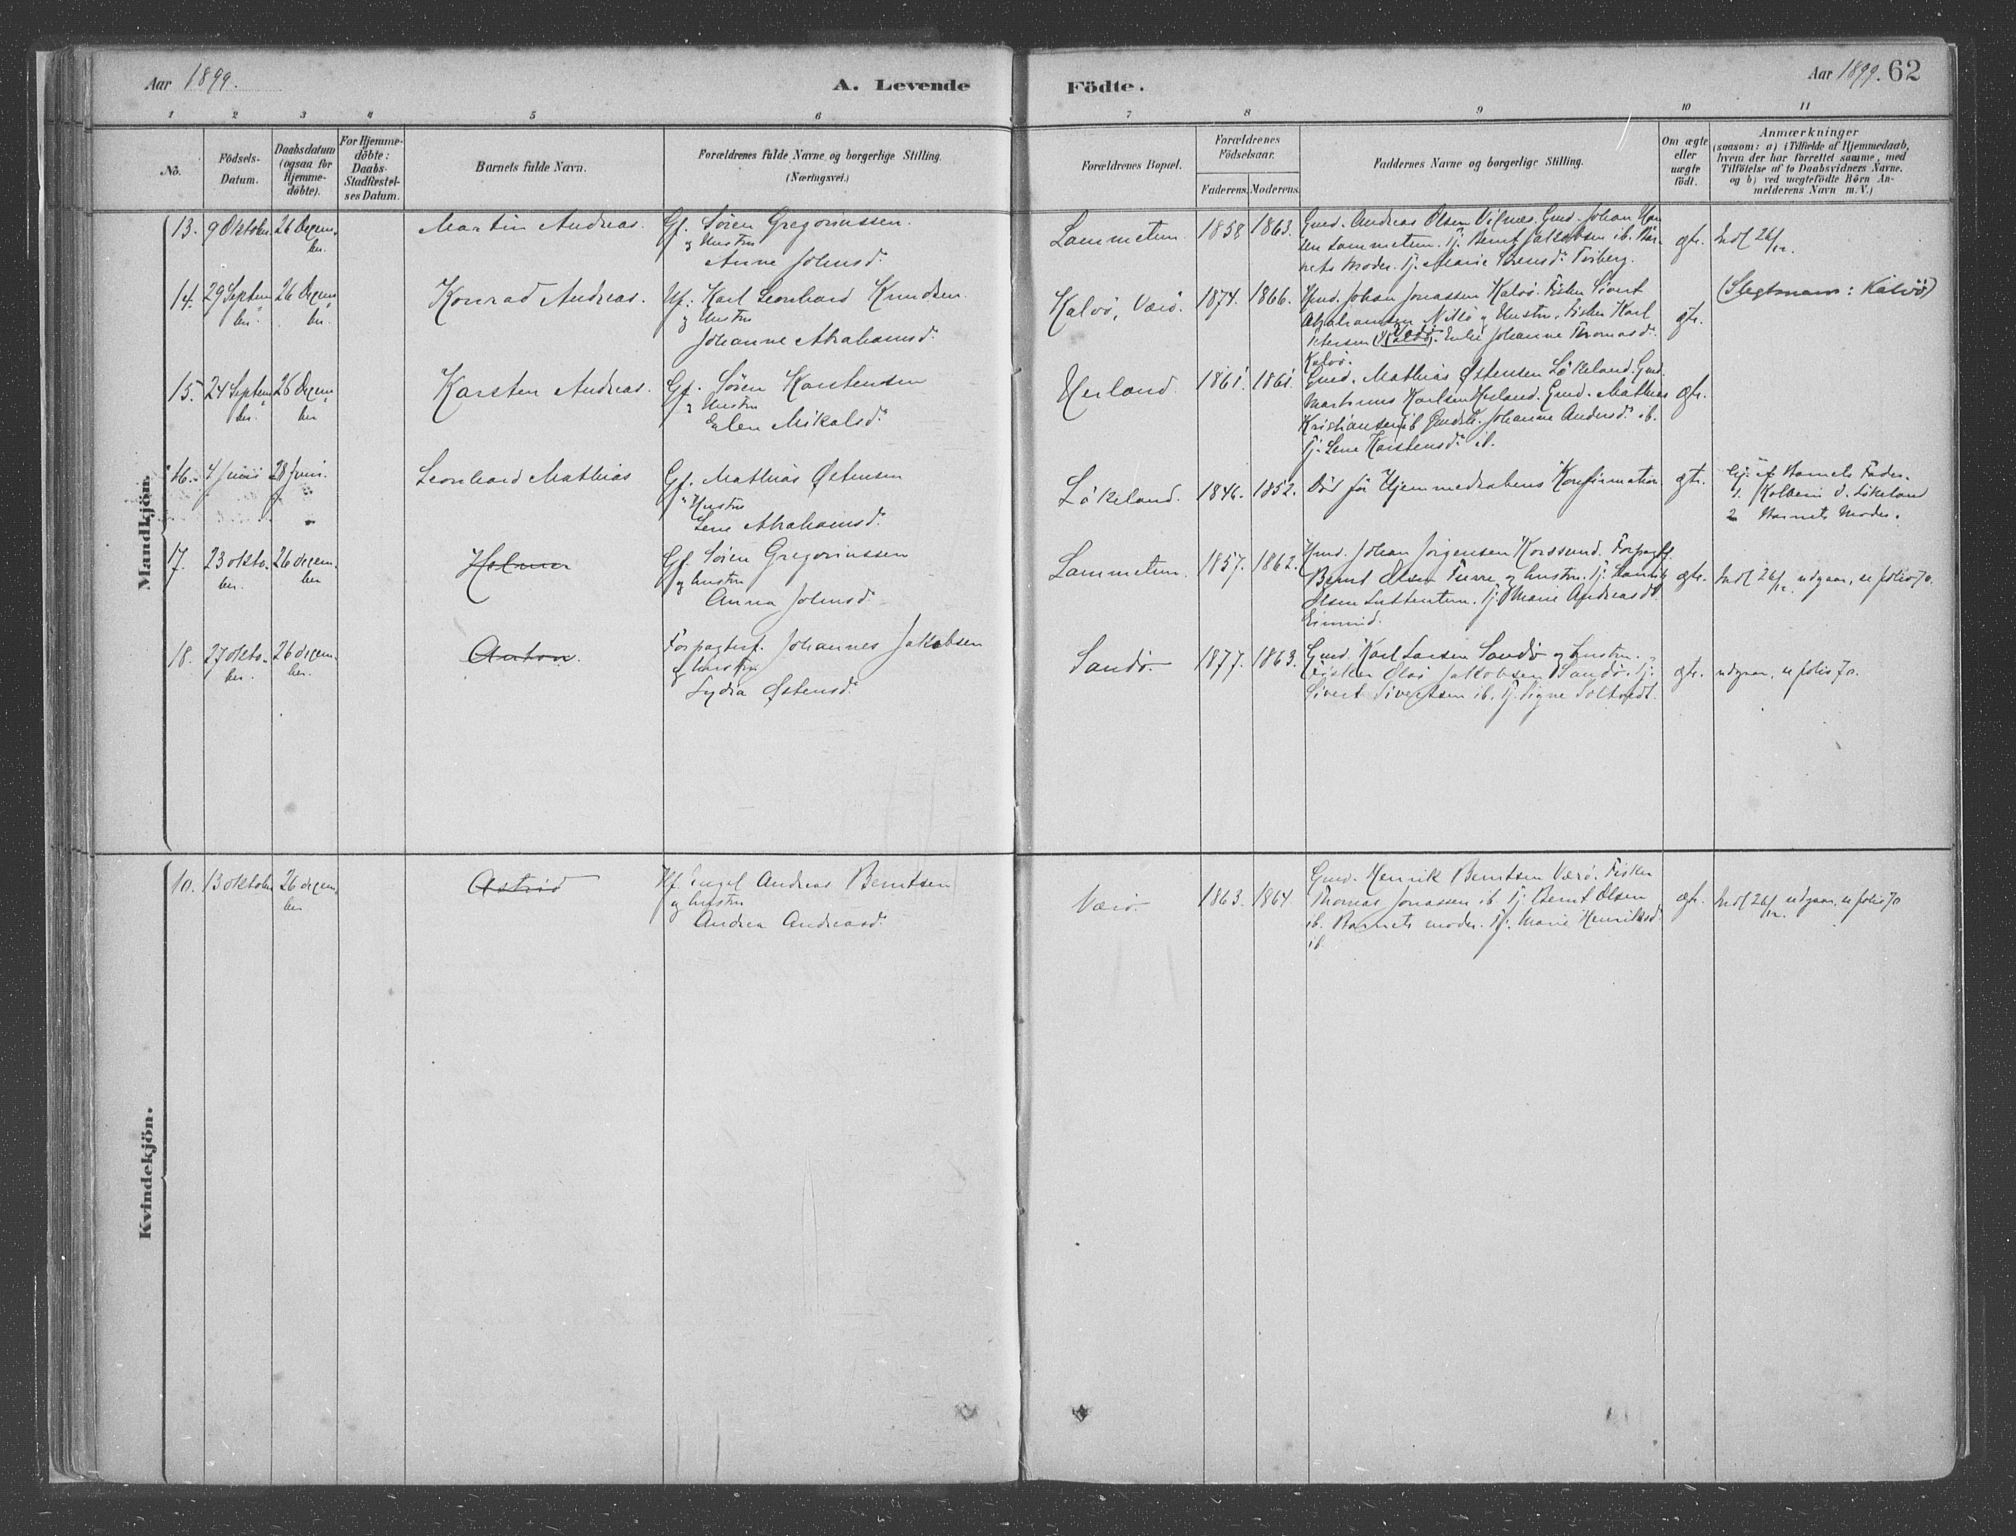 Aar 1899.
A. Levende
Födte.
Aar 1899. 62
1 2 3 4 5 6 7 8 9 10 11
No.
Födsels-
Datum.
Daabsdatum
(ogsaa for
Hjemme-
döbte).
For Hjemme-
döbte:
Daabs-
Stadfæstel-
ses Datum.
Barnets fulde Navn.
Forældrenes fulde Navne og borgerlige Stilling.
(Næringsvei.)
Forældrenes Bopæl.
Forældrenes
Födselsaar.
Faderens. Moderens.
Faddernes Navne og borgerlige Stilling.
Om ægte
eller
uægte
födt.
Anmærkninger
(saasom: a) i Tilfælde af Hjemmedaab,
hvem der har forrettet samme, med
Tilföielse af to Daabsvidners Navne.
og b) ved uægtefödte Börn An-
melderens Navn m.V.)
Mandkjön.
13. 9 Oktober 26 Decem-
ber.
Martin Andreas.
Gf. Søren Gregoriussen.
og Hustru
Anne Johnsd.
Lammetun 1858 1863.
Gmd. Andreas Olsen Vilnæs. Gmd. Johan Han-
sen Lammetun. Tj. Bernt Jakobsen ib. Bar-
nets Moder. Tj. Marie Sørensd.
ægte. Indl 26/12.
14. 29 Septem-
ber. 26 Decem-
ber.
Konrad Andreas.
Karl Leonhard Knudsen
og Hustru
Johanne Abrahamsd.
Kalvø, Værø. 1874. 1866.
Johan Jonassen Kalvø. Fisker Sivert
Abrahamsen og Hustru. Fisker Karl
Petersen (Kalvø). Enke Johanne Thomasd.
Kalvø.
ægte. (Slegtsnavn: Kalvø)
15. 24 Septem-
ber. 26 Decem-
ber
Karsten Andreas.
Gf. Søren Karstensen
og Hustru
Elen Mikalsd.
Herland. 1861. 1861.
Gmd. Mathias Østensen Løkeland. Gmd.
Martinus Karlsen Herland. Gmd. Mathias
Kristiansen ib. Johanne Andersd. ib.
Tj. Lene Karstensd. ib.
ægte.
16. 4 Juni 28 Juni.
Leonhard Mathias
Gf. Mathias Østensen
og Hustru
Lene Abrahamsd.
Løkeland. 1846. 1852.
Død før Hjemmedaabens Konfirmation
ægte. Hj. af Barnets Fader.
1. Kolbein O. Løkeland
2 Barnets Moder.
17. 23 Okto-
ber. 26 Decem-
ber
Holmer
Gf. Søren Gregoriussen
og Hustru
Anna Johnsd.
Lammetun. 1857. 1862.
Johan Jørgensen Korssund. Forpagtf.
Bernt Olsen og Hustru. Tj.
Olsen Lutentun. Tj. Marie Andreasd.
ægte. Indl 26/12. udgaar, se folio 70.
18. 27 Okto-
ber. 26 decem-
ber.
Anton.
Forpagterf. Johannes Jakobsen
og Hustru
Lydia Østensd.
Sandø. 1877. 1863.
Gmd. Karl Larsen Sandø og Hustru.
Fisker Olai Jakobsen Sandø. Tj.
Sivert Sivertsen ib. Tj. Signe
ægte. udgaar, se folio 70.
Kvindekjön.
10. 13 Oktober 26 decem-
ber
Astrid
Engel Andreas Berntsen
og Hustru
Andrea Andreasd.
Værø. 1863. 1864
Gmd. Henrik Berntsen Værø. Fisker
Thomas Jonassen ib. Tj. Bernt Olsen
ib. Barnets moder. Tj. Marie Henriksd
ib.
ægte. Indl 26/12 udgaar, se folio 70